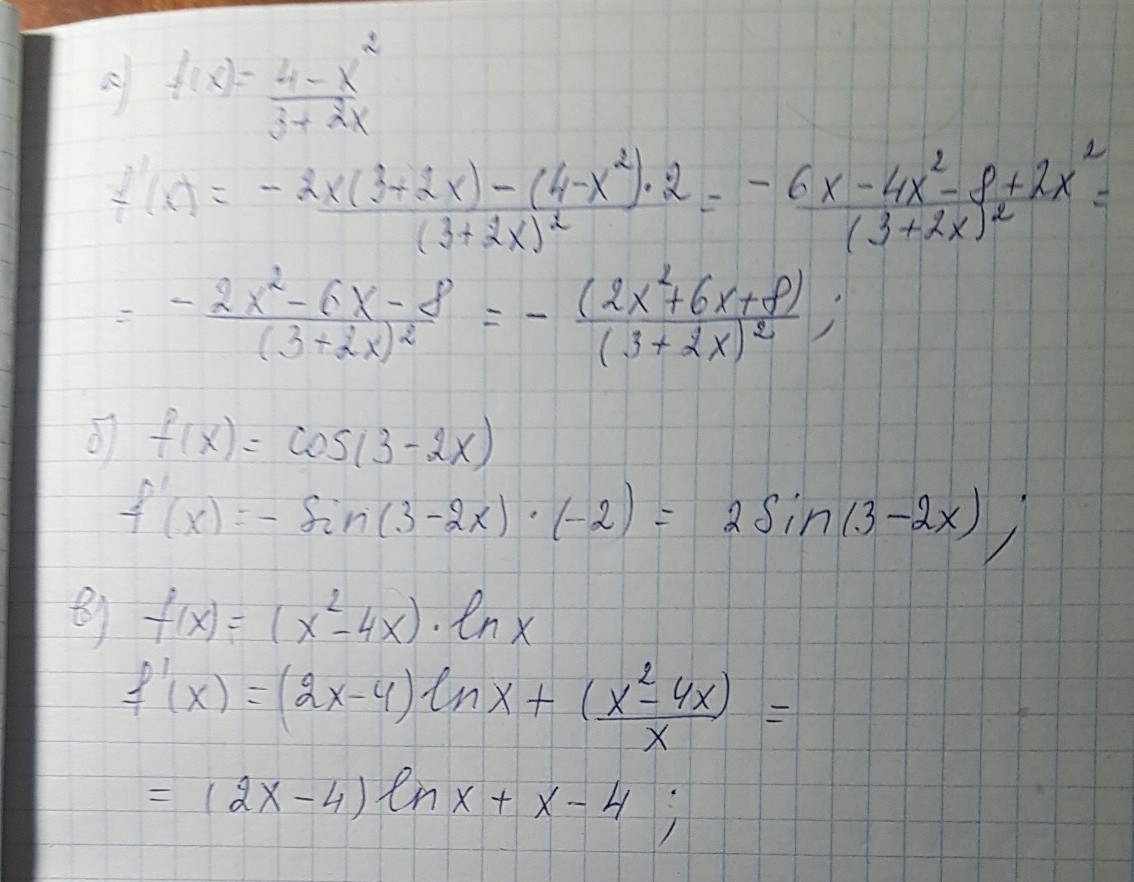 а) f(x) = (4 - x²)/(3 + 2x)
f'(x) = (-2x(3+2x) - (4-x²)·2)/(3+2x)² = (-6x - 4x² - 8 + 2x²)/(3+2x)² =
= (-2x² - 6x - 8)/(3+2x)² = - (2x²+6x+8)/(3+2x)² ;
б) f(x) = cos(3-2x)
f'(x) = - Sin(3-2x)·(-2) = 2Sin(3-2x) ;
в) f(x) = (x²-4x)·ln x
f'(x) = (2x-4)ln x + (x²-4x)/x =
= (2x-4)ln x + x - 4 ;